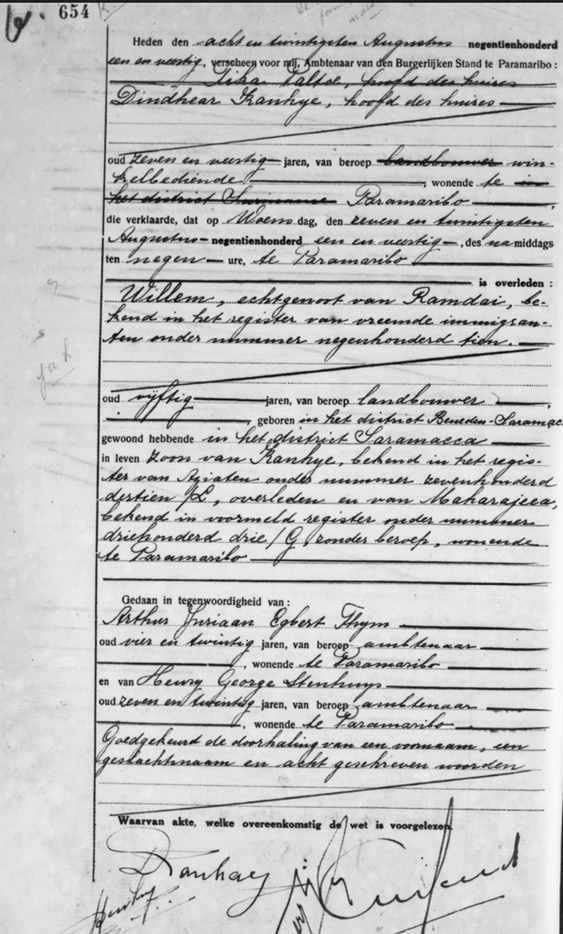 654
Heden den acht en twintigsten Augustus negentienhonderd
een en veertig, verscheen voor mij, Ambtenaar van den Burgerlijken Stand te Paramaribo :
hoofd des huizes
Dindhear Kanhye, hoofd des huizes
oud zeven en veertig jaren, van beroep landbouwer win-
kelbediende, wonende te in
het district Suriname Paramaribo,
die verklaarde, dat op Woensdag, den zeven en twintigsten
Augustus negentienhonderd een en veertig, des namiddags
ten negen ure, te Paramaribo
is overleden :
Willem, echtgenoot van Ramdai, be-
kend in het register van vreemde immigran-
ten onder nummer negenhonderd tien.
oud vijftig jaren, van beroep landbouwer
, geboren in het district Beneden-Saramac
gewoond hebbende in het district Saramacca
in leven zoon van Kanhye, bekend in het regis-
ter van Aziaten onder nummer zevenhonderd
dertien /L, overleden en van Maharajeea,
bekend in voormeld register onder nummer
driehonderd drie / G, zonder beroep, wonende
te Paramaribo
Gedaan in tegenwoordigheid van :
Arthur Juriaan Egbert Thym
oud vier en twintig jaren, van beroep ambtenaar
, wonende te Paramaribo
en van Henry George Stenhuys
oud zeven en twintig jaren, van beroep ambtenaar
, wonende te Paramaribo
Goedgekeurd de doorhaling van een voornaam, een
geslachtsnaam en acht geschreven woorden
Waarvan akte, welke overeenkomstig de wet is voorgelezen.